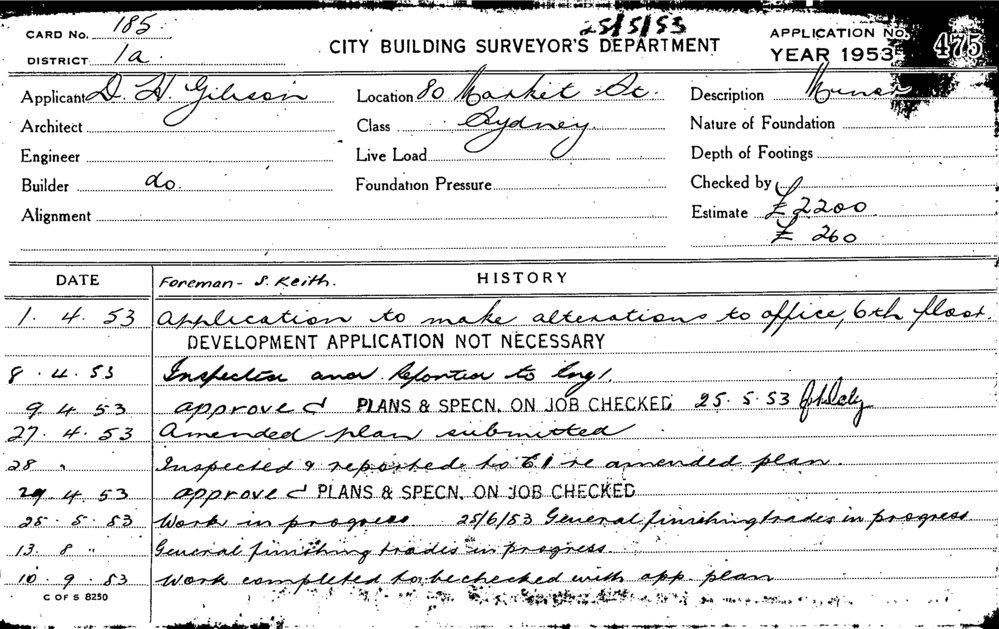 CARD No. 185 25/5/53 APPLICATION No. 475
CITY BUILDING SURVEYOR'S DEPARTMENT YEAR 1953
DISTRICT 1a
Applicant D. H. Gibson Location 80 Market St. Description Minor
Architect Class Sydney. Nature of Foundation
Engineer Live Load Depth of Footings
Builder do. Foundation Pressure Checked by
Alignment Estimate £2200
£ 260
DATE Foreman - S. Keith. HISTORY
1. 4. 53 Application to make alterations to office, 6th floor.
DEVELOPMENT APPLICATION NOT NECESSARY
8. 4. 53 Inspected and Reported to Eng/.
9. 4. 53 approved PLANS & SPECN. ON JOB CHECKED 25. 5. 53
27. 4. 53 Amended plan submitted
28 " Inspected & reported to C/I re amended plan.
29. 4. 53 approved PLANS & SPECN. ON JOB CHECKED
25. 5. 53 Work in progress. 25/6/53 General finishing trades in progress
13. 8 " General finishing trades in progress.
10. 9. 53 Work completed to be checked with app. plan
C OF S 8250